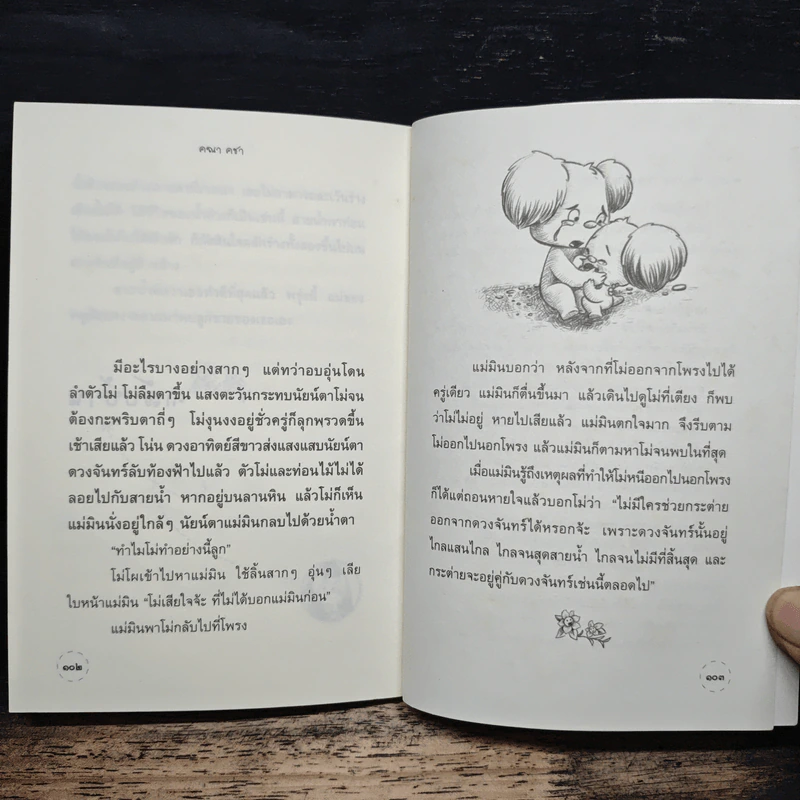 คณา คชา
มีอะไรบางอย่างสากๆ แต่ทว่าอบอุ่นโดน
ลำตัวโม่ โม่ลืมตาขึ้น แสงตะวันกระทบนัยน์ตาโม่จน
ต้องกะพริบตาถี่ๆ โม่งุนงงอยู่ชั่วครู่ก็ลุกพรวดขึ้น
เช้าเสียแล้ว โน่น ดวงอาทิตย์สีขาวส่งแสงแสบนัยน์ตา
ดวงจันทร์ลับท้องฟ้าไปแล้ว ตัวโม่และท่อนไม้ไม่ได้
ลอยไปกับสายน้ำ หากอยู่บนลานหิน แล้วโม่ก็เห็น
แม่มินนั่งอยู่ใกล้ๆ นัยน์ตาแม่มินกลบไปด้วยน้ำตา
“ทำไมโม่ทำอย่างนี้ลูก”
โม่โผเข้าไปหาแม่มิน ใช้ลิ้นสากๆ อุ่นๆ เลีย
ใบหน้าแม่มิน “โม่เสียใจจ้ะ ที่ไม่ได้บอกแม่มินก่อน”
แม่มินพาโม่กลับไปที่โพรง
๑๐๒
แม่มินบอกว่า หลังจากที่โม่ออกจากโพรงไปได้
ครู่เดียว แม่มินก็ตื่นขึ้นมา แล้วเดินไปดูโม่ที่เตียง ก็พบ
ว่าโม่ไม่อยู่ หายไปเสียแล้ว แม่มินตกใจมาก จึงรีบตาม
โม่ออกไปนอกโพรง แล้วแม่มินก็ตามหาโม่จนพบในที่สุด
เมื่อแม่มินรู้ถึงเหตุผลที่ทำให้โม่หนีออกไปนอกโพรง
ก็ได้แต่ถอนหายใจแล้วบอกโม่ว่า “ไม่มีใครช่วยกระต่าย
ออกจากดวงจันทร์ได้หรอกจ้ะ เพราะดวงจันทร์นั้นอยู่
ไกลแสนไกล ไกลจนสุดสายน้ำ ไกลจนไม่มีที่สิ้นสุด และ
กระต่ายจะอยู่คู่กับดวงจันทร์เช่นนี้ตลอดไป”
๑๐๓